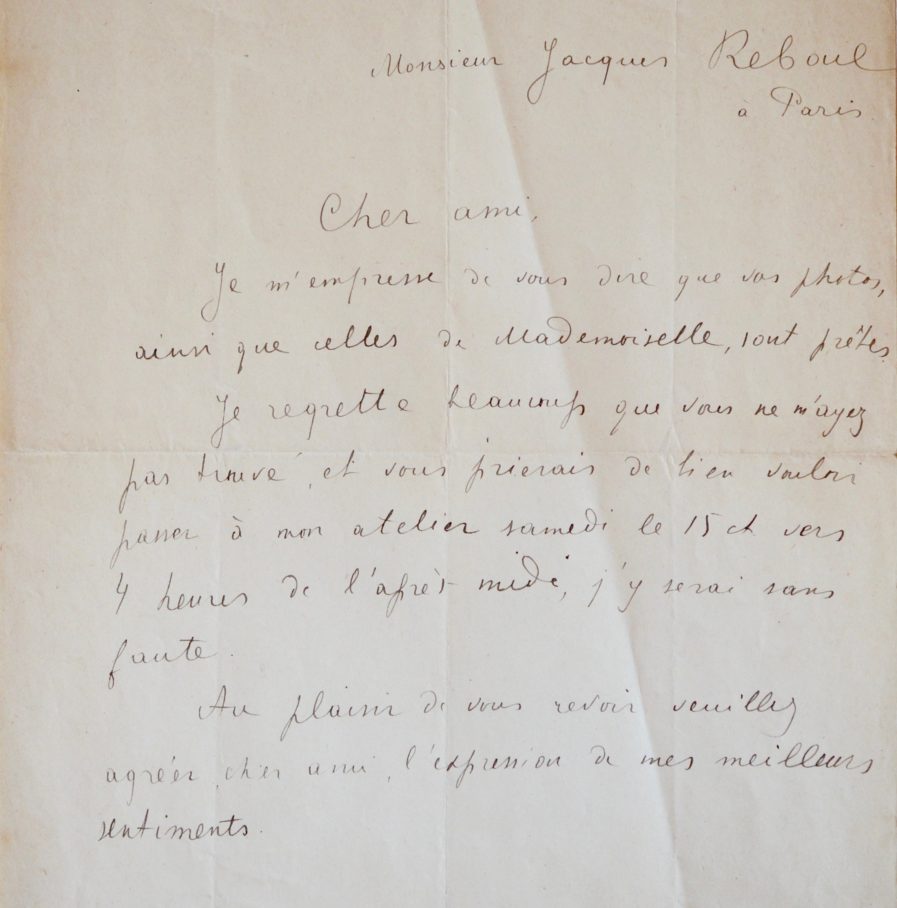 Monsieur Jacques Reboul
à Paris
Cher ami,
Je m'empresse de vous dire que vos photos,
ainsi que celles de Mademoiselle, sont prêtes.
Je regrette beaucoup que vous ne m'ayez
pas trouvé, et vous prierais de bien vouloir
passer à mon atelier samedi le 15 ct vers
4 heures de l'après-midi, j'y serai sans
faute.
Au plaisir de vous revoir veuillez
agréer, cher ami, l'expression de mes meilleurs
sentiments.